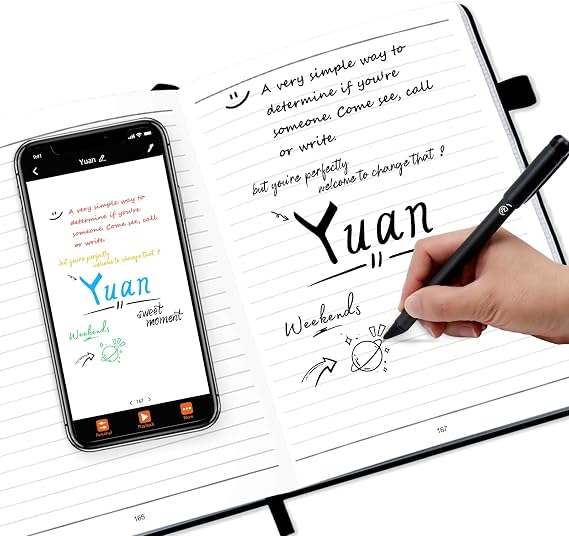 9:41
Yuan
A very simple way to
determine if you're
someone. Come see, call
or write.
but you're perfectly
welcome to change that!
Yuan
sweet
moment
Weekends
167
Personal
Playback
More
165
A very simple way to
determine if you're
someone. Come see, call
or write.
but you're perfectly
welcome to change that!
Yuan
Weekends
167